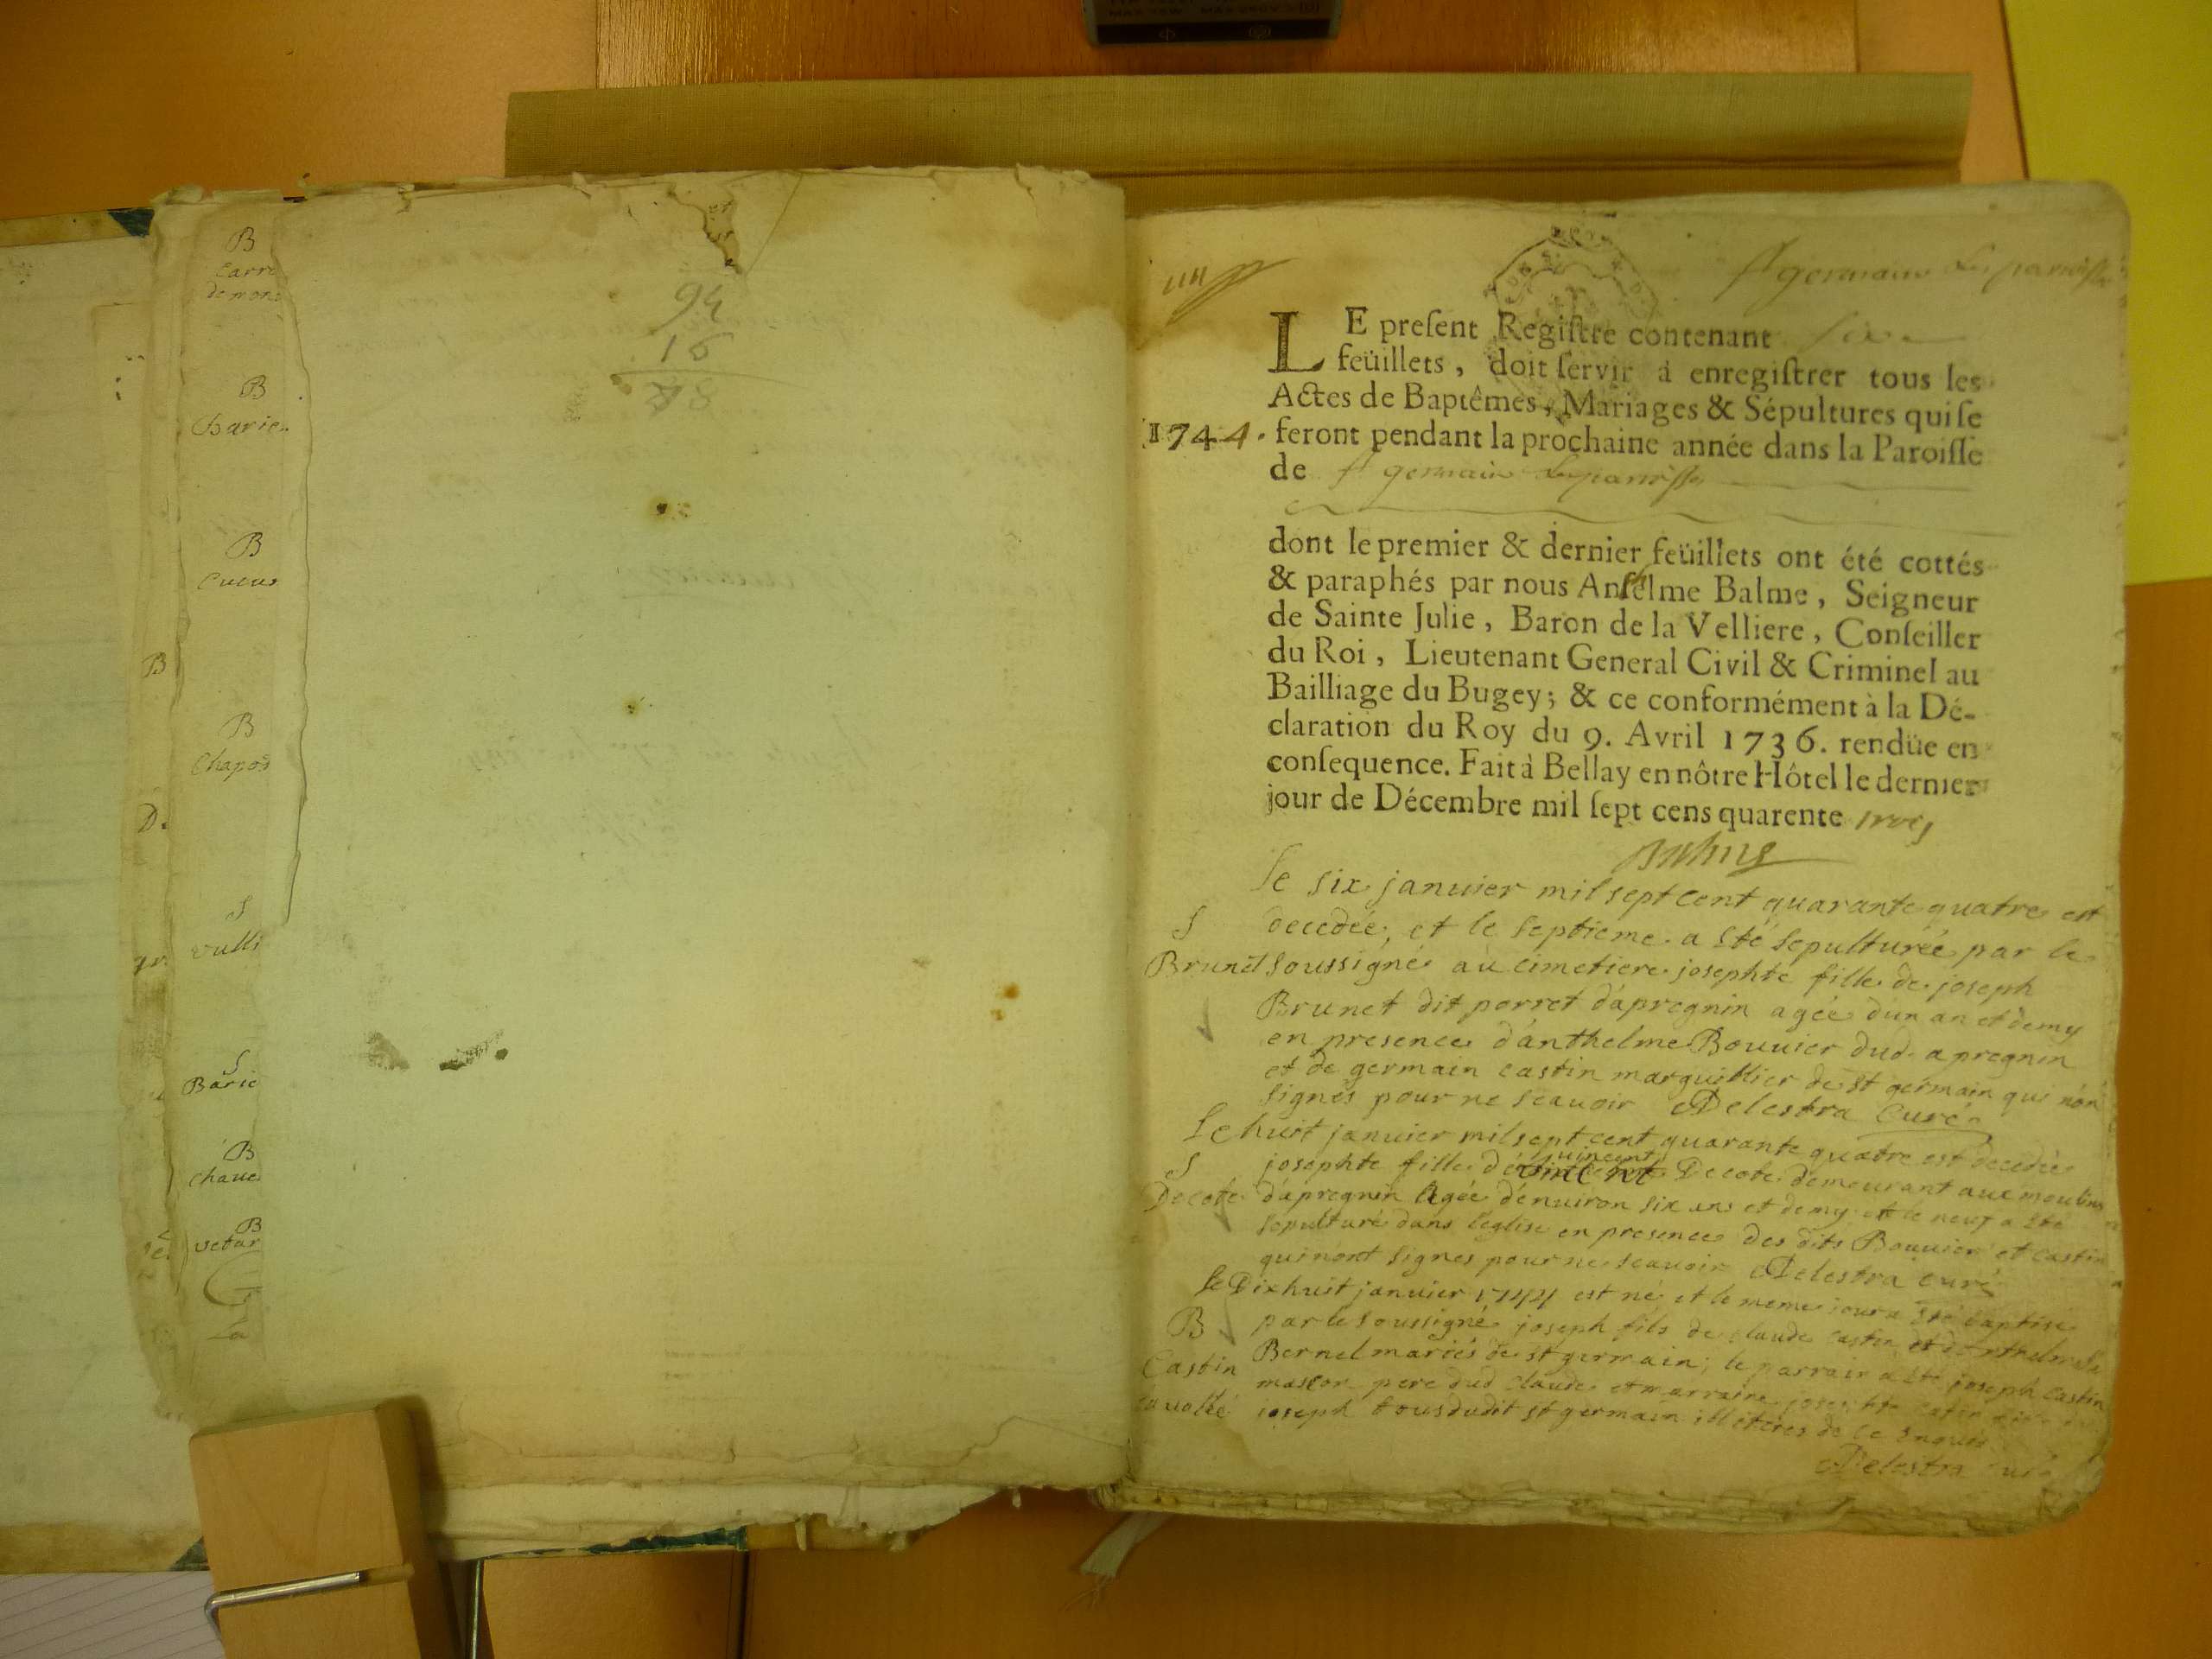 B
Carre
demon
B
Barie
B
Cucus
B
B
Chapos
D.
S
vulli
S
Barie
B
Chaue
B
vetar
La
94
16
78
st germain Les parroisses
LE present Registre contenant six
feüillets, doit servir à enregistrer tous les
Actes de Baptêmes, Mariages & Sépultures qui se
1744. feront pendant la prochaine année dans la Paroisse
de st germain Les parroisses
dont le premier & dernier feüillets ont été cottés
& paraphés par nous Anthelme Balme, Seigneur
de Sainte Julie, Baron de la Velliere, Conseiller
du Roi, Lieutenant General Civil & Criminel au
Bailliage du Bugey; & ce conformément à la Dé-
claration du Roy du 9. Avril 1736. rendüe en
consequence. Fait à Bellay en nôtre Hôtel le dernier
jour de Décembre mil sept cens quarente trois
Balme
Le six januier mil sept cent quarante quatre est
S decedée, et le septieme a eté sepulturée par le
Brunet soussigné au cimetiere josephte fille de joseph
Brunet dit porret d'apregnin agée d'un an et demy
en presence d'anthelme Bouuier dud. apregnin
et de germain castin marguillier de st germain qui n'on
signés pour ne scauoir Delestra Curé
Le huit januier mil sept cent quarante quatre est decedée
S josephte fille de vincent Decote demeurant aux moulins
Decote d'apregnin agée d'enuiron six ans et demy et le neuf a eté
sepulturé dans l'eglise en presence des dits Bouuier et castin
qui n'ont signes pour ne scauoir Delestra curé
Le Dixhuit januier 1744 est né et le meme jour a eté baptisé
B par le soussigné joseph fils de claude castin et d'anthelme
Castin Bernel mariés de st germain; le parrain a eté joseph castin
masson pere dud claude et marraine josephte
joseph tous dudit st germain illeteres de ce enquis
Delestra curé